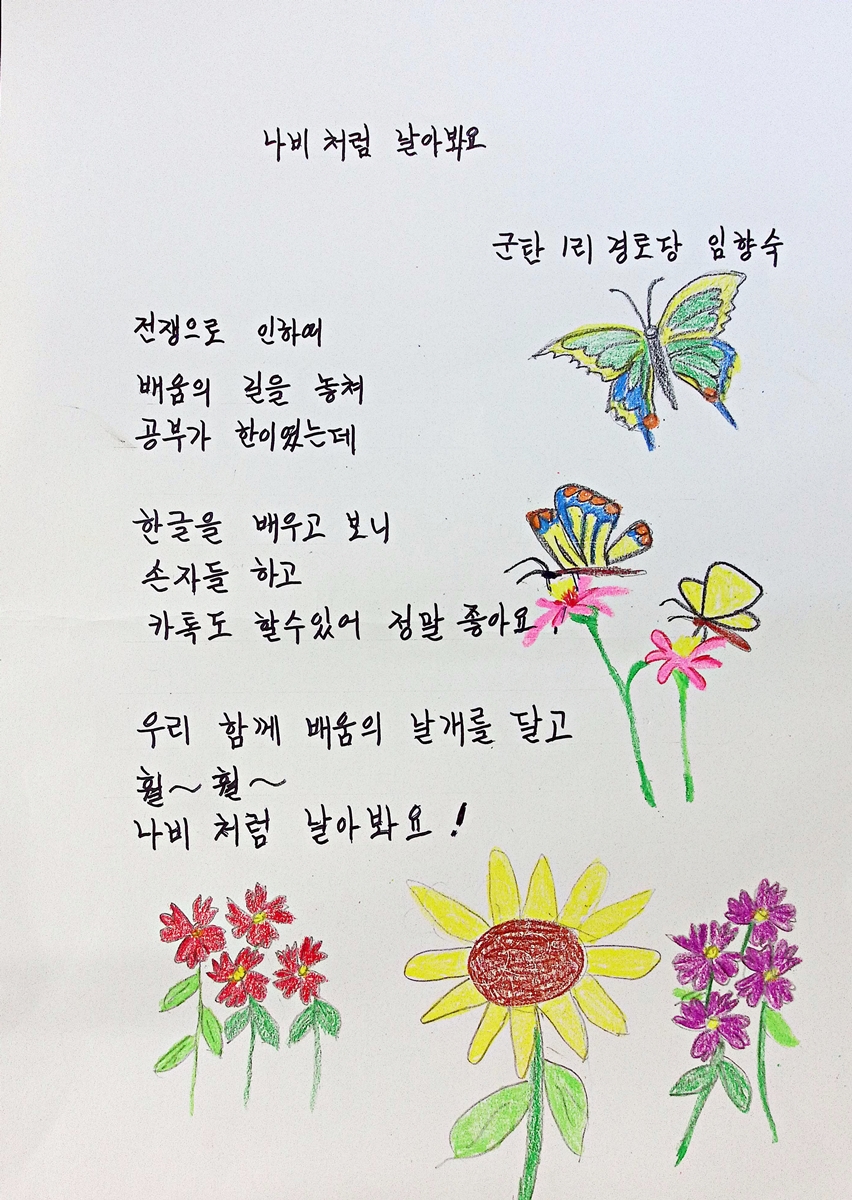 나비 처럼 날아봐요
군탄 1리 경로당 임향숙
전쟁으로 인하여
배움의 길을 놓쳐
공부가 한이였는데
한글을 배우고 보니
손자들 하고
카톡도 할수있어 정말 좋아요!
우리 함께 배움의 날개를 달고
훨~훨~
나비 처럼 날아봐요!